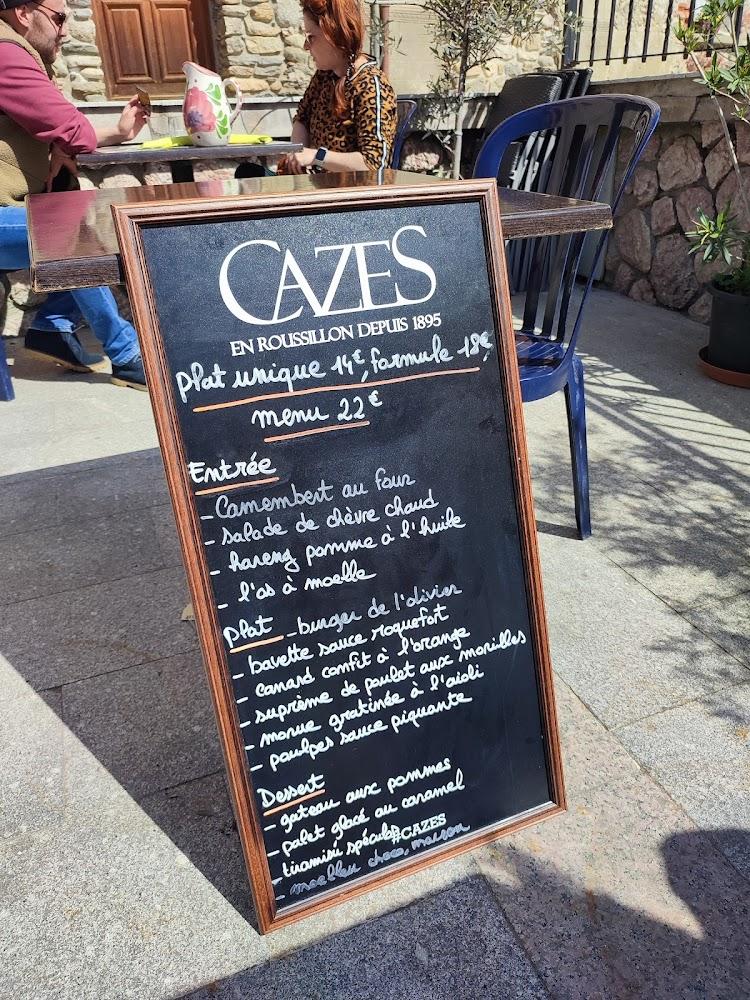 CAZES
EN ROUSSILLON DEPUIS 1895
plat unique 14€, formule 18€
menu 22€
Entrée
- Camembert au four
- salade de chèvre chaud
- hareng pomme à l'huile
- l'os à moelle
Plat - burger de l'olivier
- bavette sauce roquefort
- canard confit à l'orange
- suprême de poulet aux morilles
- morue gratinée à l'aioli
- poulpes sauce piquante
Dessert
- gateau aux pommes
- palet glacé au caramel
- tiramisu spéculos
#CAZES
- moelleu choco, maison